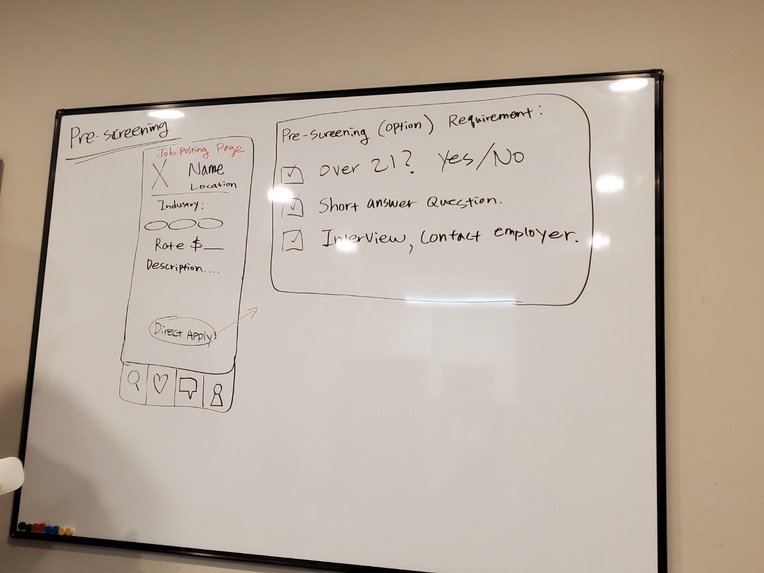 Pre-screening
Job Posting Page
Name
Location
Industry:
Rate $__
Description....
Direct Apply
Pre-Screening (option) Requirement:
Over 21? Yes/No
Short answer Question.
Interview, Contact employer.